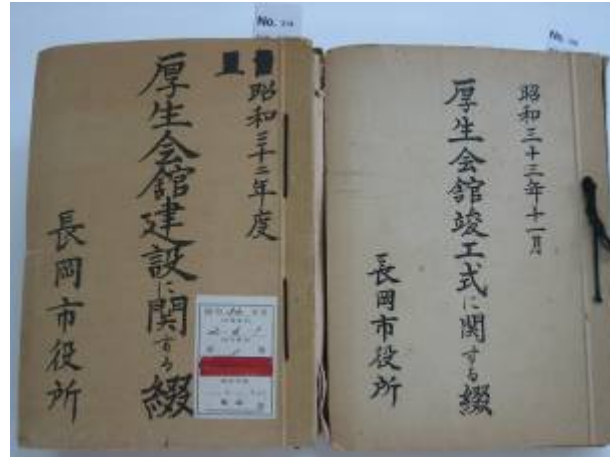 No.
昭和三十二年度
厚生会館建設に関する綴
長岡市役所
No.
昭和三十三年十一月
厚生会館竣工式に関する綴
長岡市役所